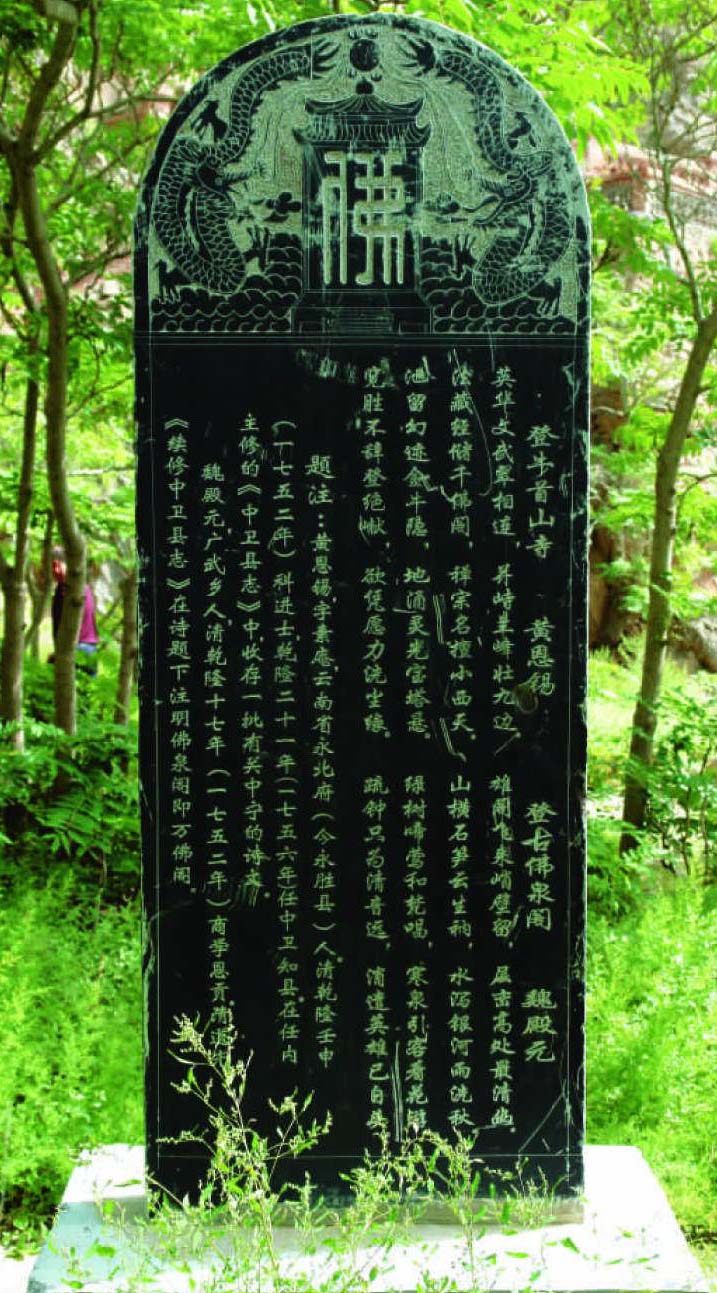 佛
登牛首山寺 黄恩锡 登古佛泉阁 魏殿元
英华文武翠相连，并峙峰壮九边。雄阁飞来峭壁留，高处最清幽。
法藏经储千佛阁，禅宗名擅小西天。山横石笋云生衲，水泻银河雨洗秋
池留幻迹金牛隐，地涌灵光宝塔悬。绿树啼莺和梵唱，寒泉引客看花
览胜不辞登绝巘，欲凭愿力洗尘缘。疏钟只为清音远，消遣英雄已白
题注：黄恩锡，字素庵，云南省永北府（今永胜县）人，清乾隆壬申
（一七五二年）科进士，乾隆二十一年（一七五六年）任中卫知县。在任内
主修的《中卫县志》中收存一批有关中宁的诗文。
魏殿元，广武乡人，清乾隆十七年（一七五二年）商学恩贡。清道
《续修中卫县志》在诗题下注明佛泉阁即万佛阁。